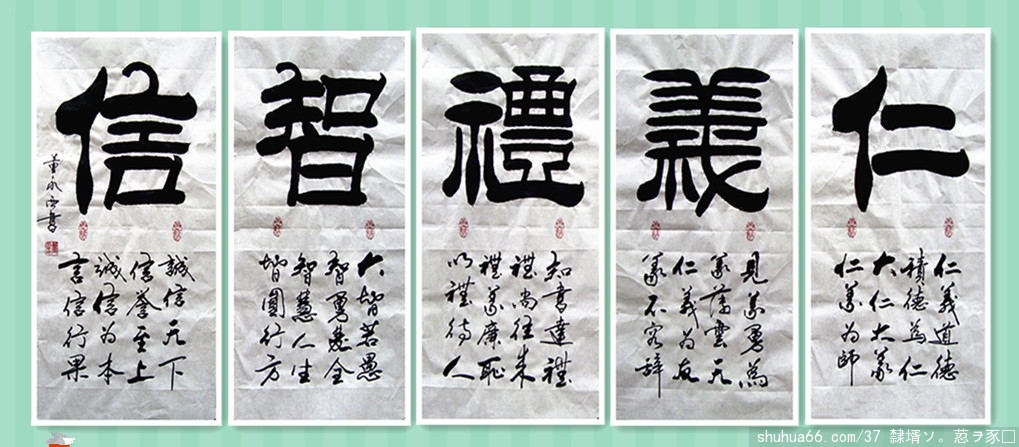 仁
仁義道德
積德為仁
大仁大義
仁義為師
義
見義勇為
義薄雲天
仁義為友
義不容辭
禮
知書達禮
禮尚往來
禮義廉恥
以禮待人
智
大智若愚
智勇雙全
智慧人生
智圓行方
信
誠信天下
信譽至上
誠信為本
言信行果
董永
書
shuhua66.com/37